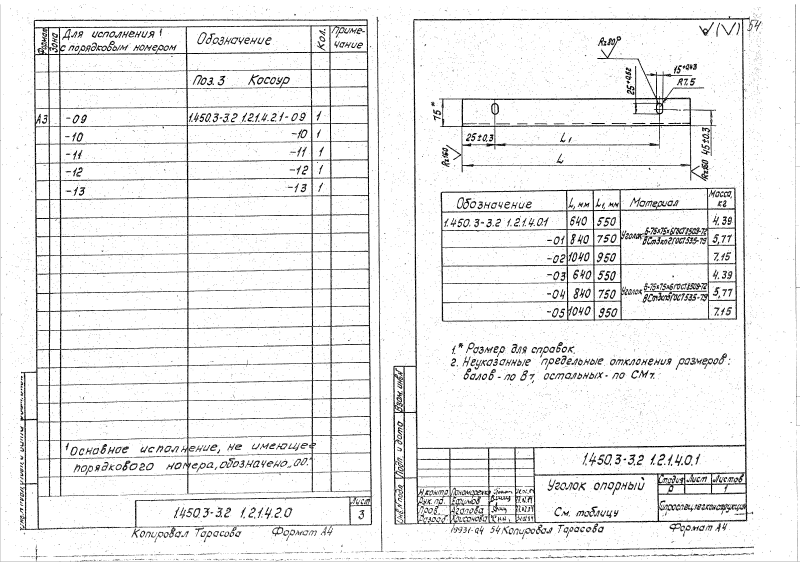 Формат
Зона
Для исполнения¹ с порядковым номером
Обозначение
Кол.
Примечание
Поз. 3 Косоур
А3 -09 1.450.3-3.2 1.2.1.4.2.1-09 1
-10 -10 1
-11 -11 1
-12 -12 1
-13 -13 1
¹ Основное исполнение, не имеющее
порядкового номера, обозначено „00".
1.450.3-3.2 1.2.1.4.2.0
Лист
3
Копировал Тарасова Формат А4
54
√(√)
Rz80
15+0,43
R7,5
25+0,52
75*
25±0,3
L1
L
45±0,3
Rz160
Rz160
Обозначение L, мм L1, мм Материал Масса, кг
1.450.3-3.2 1.2.1.4.0.1 640 550 4.39
-01 840 750 5,77
-02 1040 950 7.15
Уголок
-03 640 550 4.39
-04 840 750 5,77
-05 1040 950 7.15
Уголок
1.* Размер для справок.
2. Неуказанные предельные отклонения размеров:
валов - по
остальных - по
Взам. инв.№
Подп. и дата
Инв.№ подл.
1.450.3-3.2 1.2.1.4.0.1
Н.контр. Пономаренко
Рук.гр. Ефимов
Пров. Агапова
Разраб.
Уголок опорный
См. таблицу
Стадия Лист Листов
Р 1
Гипроспецлегконструкция
19931-04 54 Копировал Тарасова Формат А4